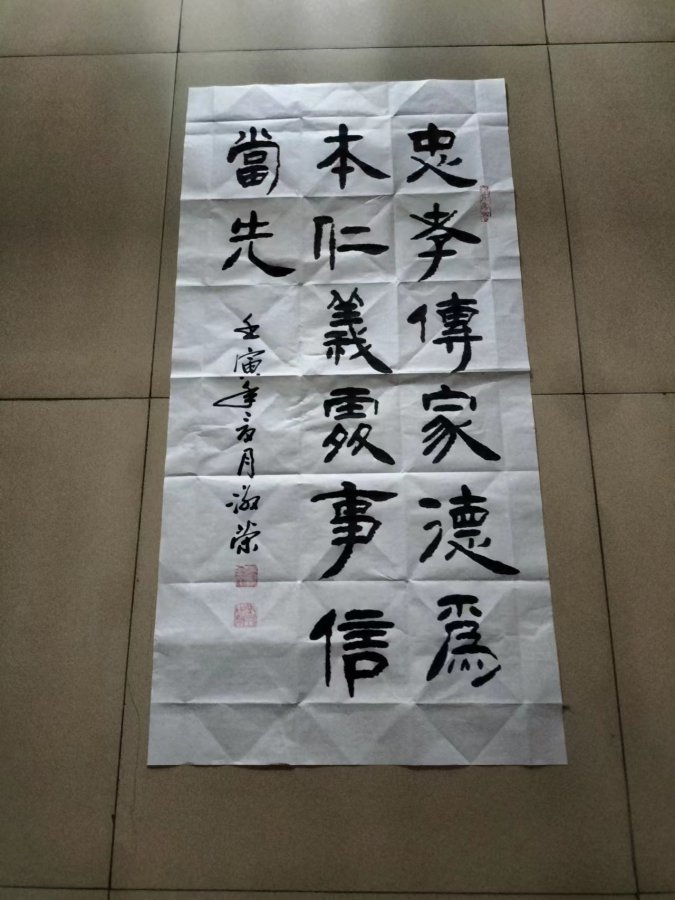 忠孝傳家德為
本仁義處事信
當先
壬寅年
月
榮